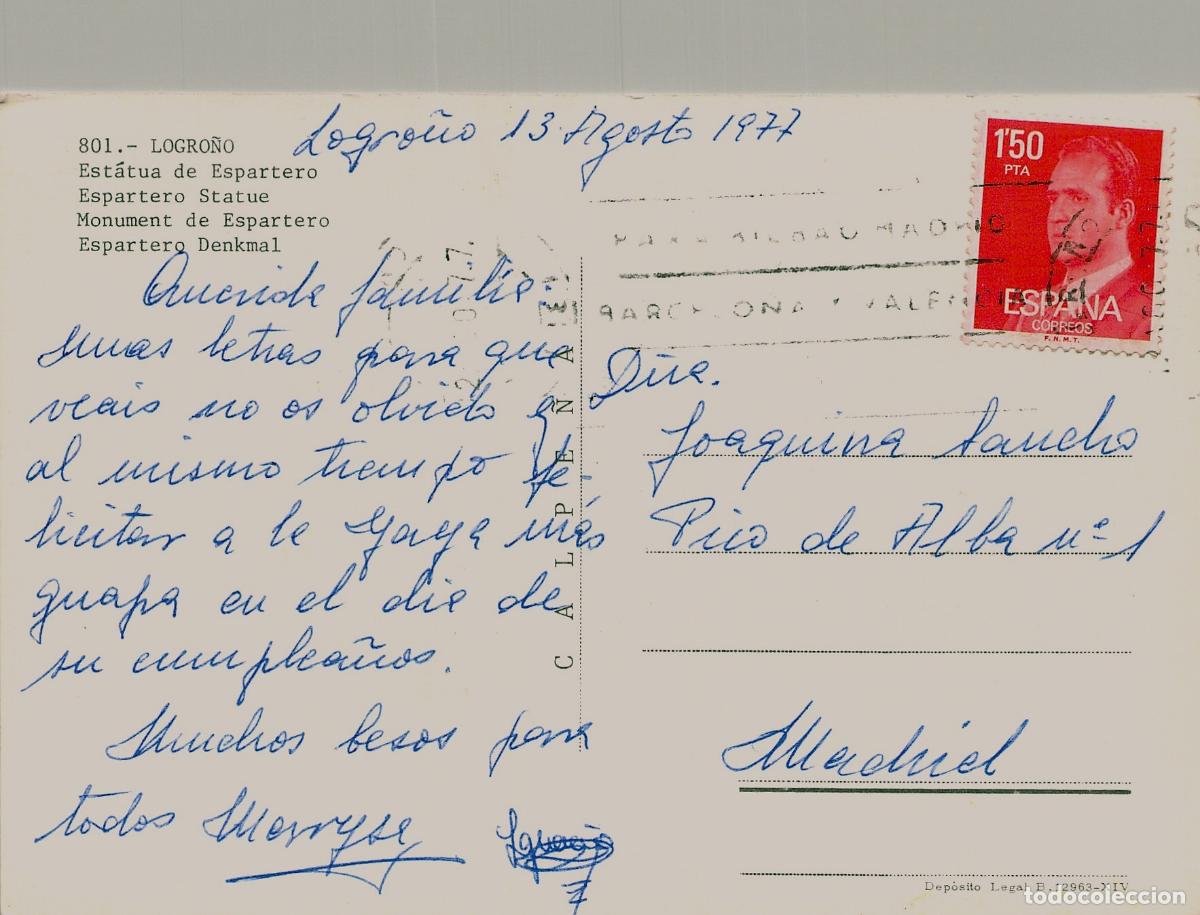 801.- LOGROÑO
Estátua de Espartero
Espartero Statue
Monument de Espartero
Espartero Denkmal
Logroño 13 Agosto 1977
Querida familia:
Unas letras para que
veais no os olvido y
al mismo tiempo fe-
licitar a la Yaya más
guapa en el dia de
su cumpleaños.
Muchos besos para
todos Marryse
Ignacio
CALPEÑA
1'50
PTA
ESPAÑA
CORREOS
F.N.M.T.
PARA BILBAO MADRID
BARCELONA Y VALENCIA
Dña.
Joaquina Sancho
Pico de Alba nº 1
Madrid
Depósito Legal B. 12963-XIV
todocoleccion